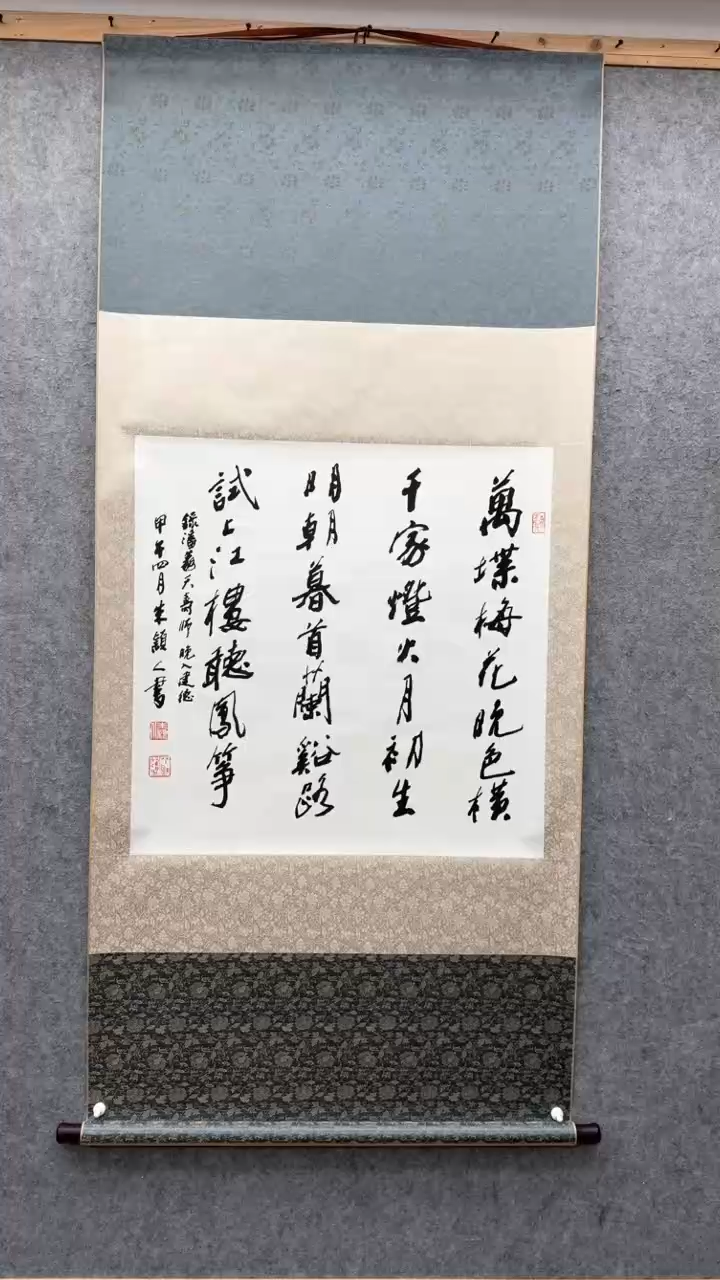 萬堞梅花晚色橫
千家燈火月初生
明朝暮首蘭谿路
試上江樓聽鳳箏
錄潘天壽師晚入建德
甲午四月朱穎人書